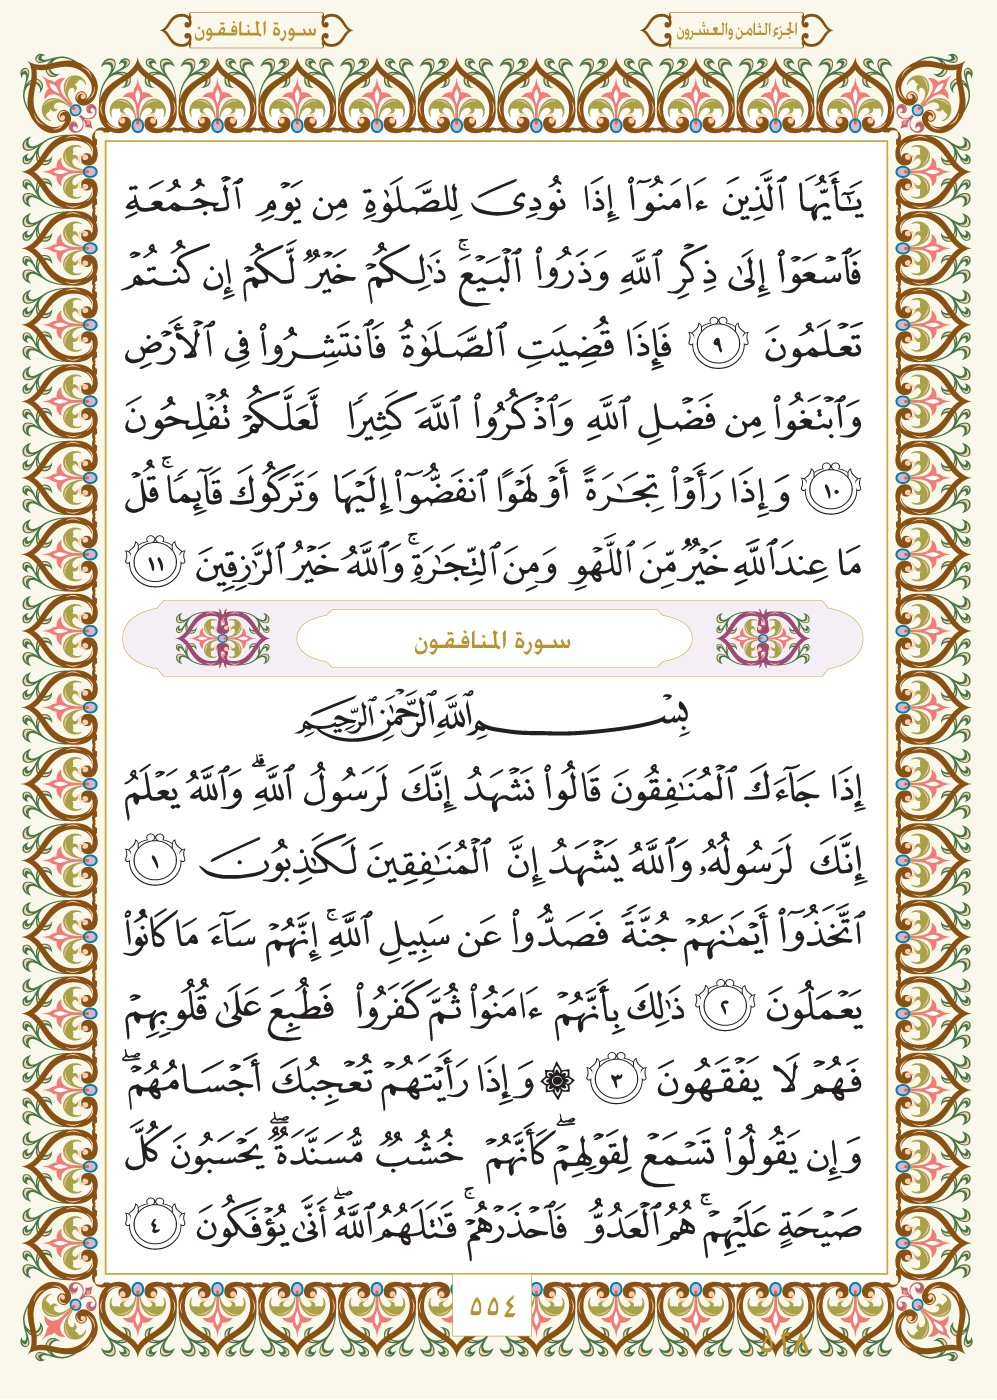 الجزء الثامن والعشرون
سورة المنافقون
يَٰٓأَيُّهَا ٱلَّذِينَ ءَامَنُوٓا۟ إِذَا نُودِىَ لِلصَّلَوٰةِ مِن يَوْمِ ٱلْجُمُعَةِ
فَٱسْعَوْا۟ إِلَىٰ ذِكْرِ ٱللَّهِ وَذَرُوا۟ ٱلْبَيْعَ ۚ ذَٰلِكُمْ خَيْرٌ لَّكُمْ إِن كُنتُمْ
تَعْلَمُونَ ٩ فَإِذَا قُضِيَتِ ٱلصَّلَوٰةُ فَٱنتَشِرُوا۟ فِى ٱلْأَرْضِ
وَٱبْتَغُوا۟ مِن فَضْلِ ٱللَّهِ وَٱذْكُرُوا۟ ٱللَّهَ كَثِيرًا لَّعَلَّكُمْ تُفْلِحُونَ
١٠ وَإِذَا رَأَوْا۟ تِجَٰرَةً أَوْ لَهْوًا ٱنفَضُّوٓا۟ إِلَيْهَا وَتَرَكُوكَ قَآئِمًا ۚ قُلْ
مَا عِندَ ٱللَّهِ خَيْرٌ مِّنَ ٱللَّهْوِ وَمِنَ ٱلتِّجَٰرَةِ ۚ وَٱللَّهُ خَيْرُ ٱلرَّٰزِقِينَ ١١
سورة المنافقون
بِسْمِ ٱللَّهِ ٱلرَّحْمَٰنِ ٱلرَّحِيمِ
إِذَا جَآءَكَ ٱلْمُنَٰفِقُونَ قَالُوا۟ نَشْهَدُ إِنَّكَ لَرَسُولُ ٱللَّهِ ۗ وَٱللَّهُ يَعْلَمُ
إِنَّكَ لَرَسُولُهُۥ وَٱللَّهُ يَشْهَدُ إِنَّ ٱلْمُنَٰفِقِينَ لَكَٰذِبُونَ ١
ٱتَّخَذُوٓا۟ أَيْمَٰنَهُمْ جُنَّةً فَصَدُّوا۟ عَن سَبِيلِ ٱللَّهِ ۚ إِنَّهُمْ سَآءَ مَا كَانُوا۟
يَعْمَلُونَ ٢ ذَٰلِكَ بِأَنَّهُمْ ءَامَنُوا۟ ثُمَّ كَفَرُوا۟ فَطُبِعَ عَلَىٰ قُلُوبِهِمْ
فَهُمْ لَا يَفْقَهُونَ ٣ ۞ وَإِذَا رَأَيْتَهُمْ تُعْجِبُكَ أَجْسَامُهُمْ ۖ
وَإِن يَقُولُوا۟ تَسْمَعْ لِقَوْلِهِمْ ۖ كَأَنَّهُمْ خُشُبٌ مُّسَنَّدَةٌ ۖ يَحْسَبُونَ كُلَّ
صَيْحَةٍ عَلَيْهِمْ ۚ هُمُ ٱلْعَدُوُّ فَٱحْذَرْهُمْ ۚ قَٰتَلَهُمُ ٱللَّهُ ۖ أَنَّىٰ يُؤْفَكُونَ ٤
٥٥٤